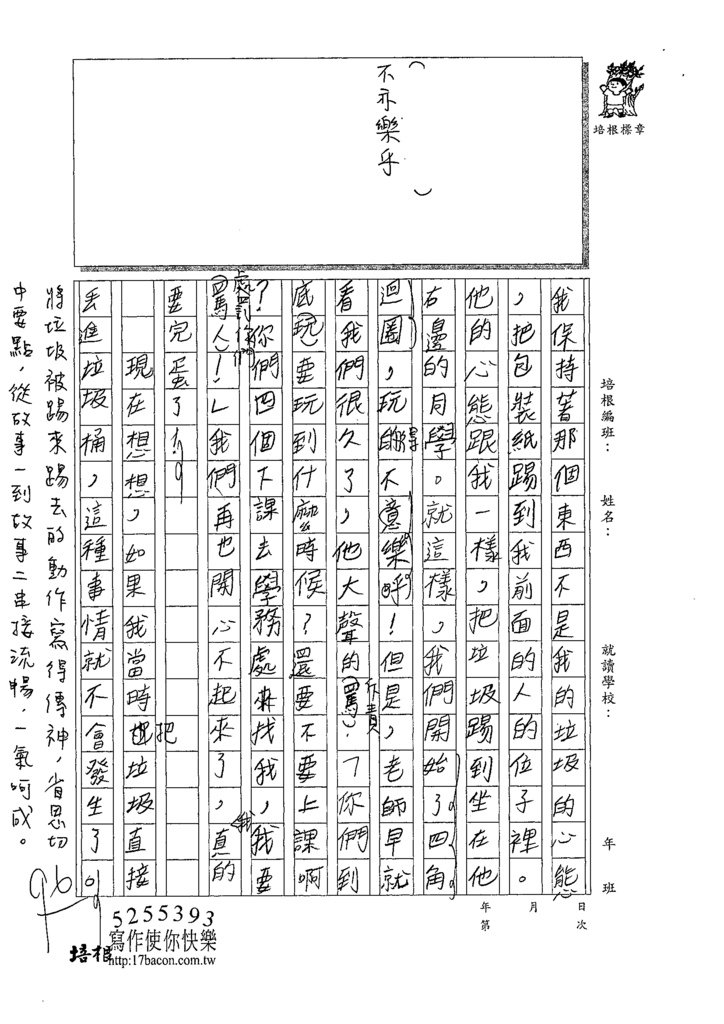 不亦樂乎
培根標章
培根編班：
姓名：
就讀學校：
年 班
年 月 日
第 次
我保持著那個東西不是我的垃圾的心態
，把包裝紙踢到我前面的人的位子裡。
他的心態跟我一樣，把垃圾踢到坐在他
右邊的同學。就這樣，我們開始了四角
迴圈，玩得不意樂呼！但是，老師早就
看我們很久了，他大聲的罵：「你們到
斥責
底玩要玩到什麼時候？還要不要上課啊
？你們四個下課去學務處來找我，我要
罵人！」我們再也開心不起來了，真的
處罰你們
我
要完蛋了！
現在想想，如果我當時把垃圾直接
丟進垃圾桶，這種事情就不會發生了。
將垃圾被踢來踢去的動作寫得傳神，省思切
中要點，從故事一到故事二串接流暢，一氣呵成。
96
5255393
培根 寫作使你快樂
http:17bacon.com.tw